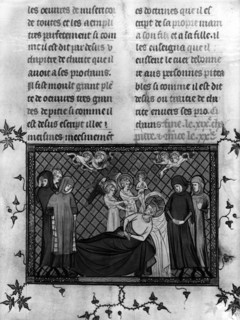 les oeuures de misericor
de toutes et les acompli
tres parfetement si com
me il est dit par desus u
chapitre de charite que il
auoit a ses prochains.
Il fist moult grant plen
te de oeuures tres gran
des de pitie si comme il
est desus escript illec
meismes meesmement
es doctrines que il es
cript de sa propre main
a son filz et a sa fille. il
les enseigna que il
eussent le cuer debonne
re aus personnes pitea
bles si comme il est dit
desus ou traitie de cha
rite enuers ses pro
chains. fine le .xix. cha
pitre